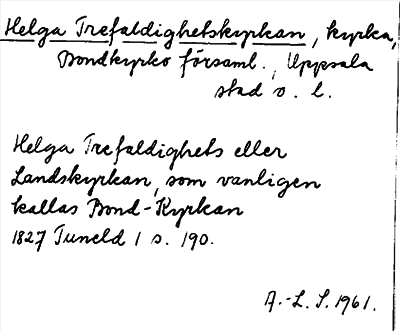 Helga Trefaldighetskyrkan, kyrka,
Bondkyrko församl., Uppsala
stad o. l.
Helga Trefaldighets eller
Landskyrkan, som vanligen
kallas Bond-Kyrkan
1827 Tuneld 1 s. 190.
A.-L. S. 1961.